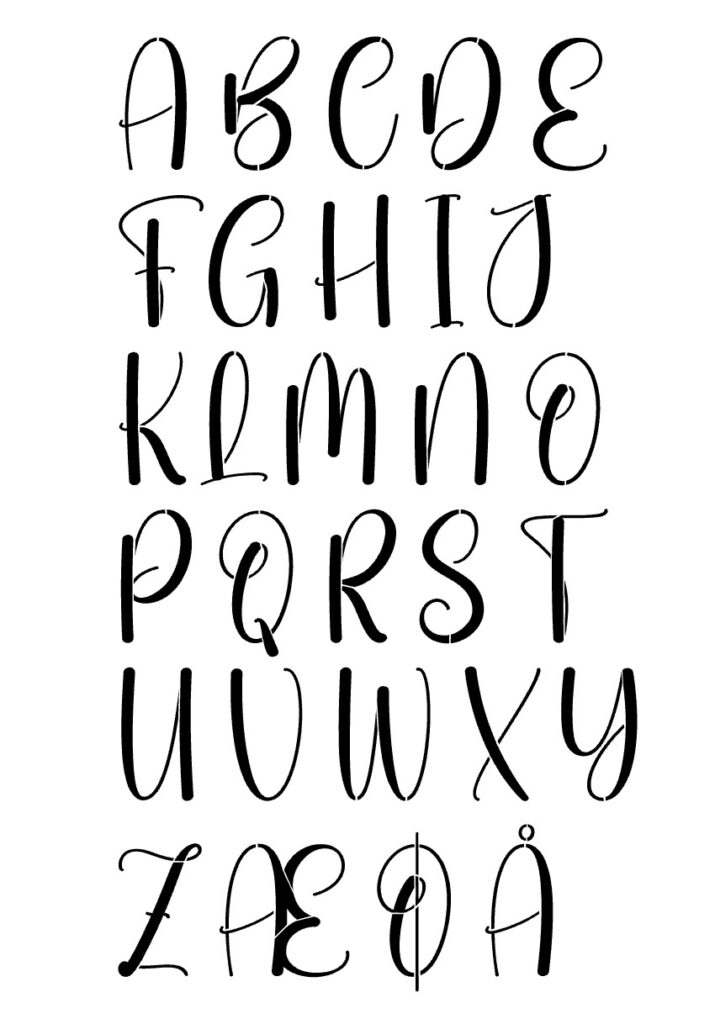 A B C D E
F G H I J
K L M N O
P Q R S T
U V W X Y
Z Æ Ø Å